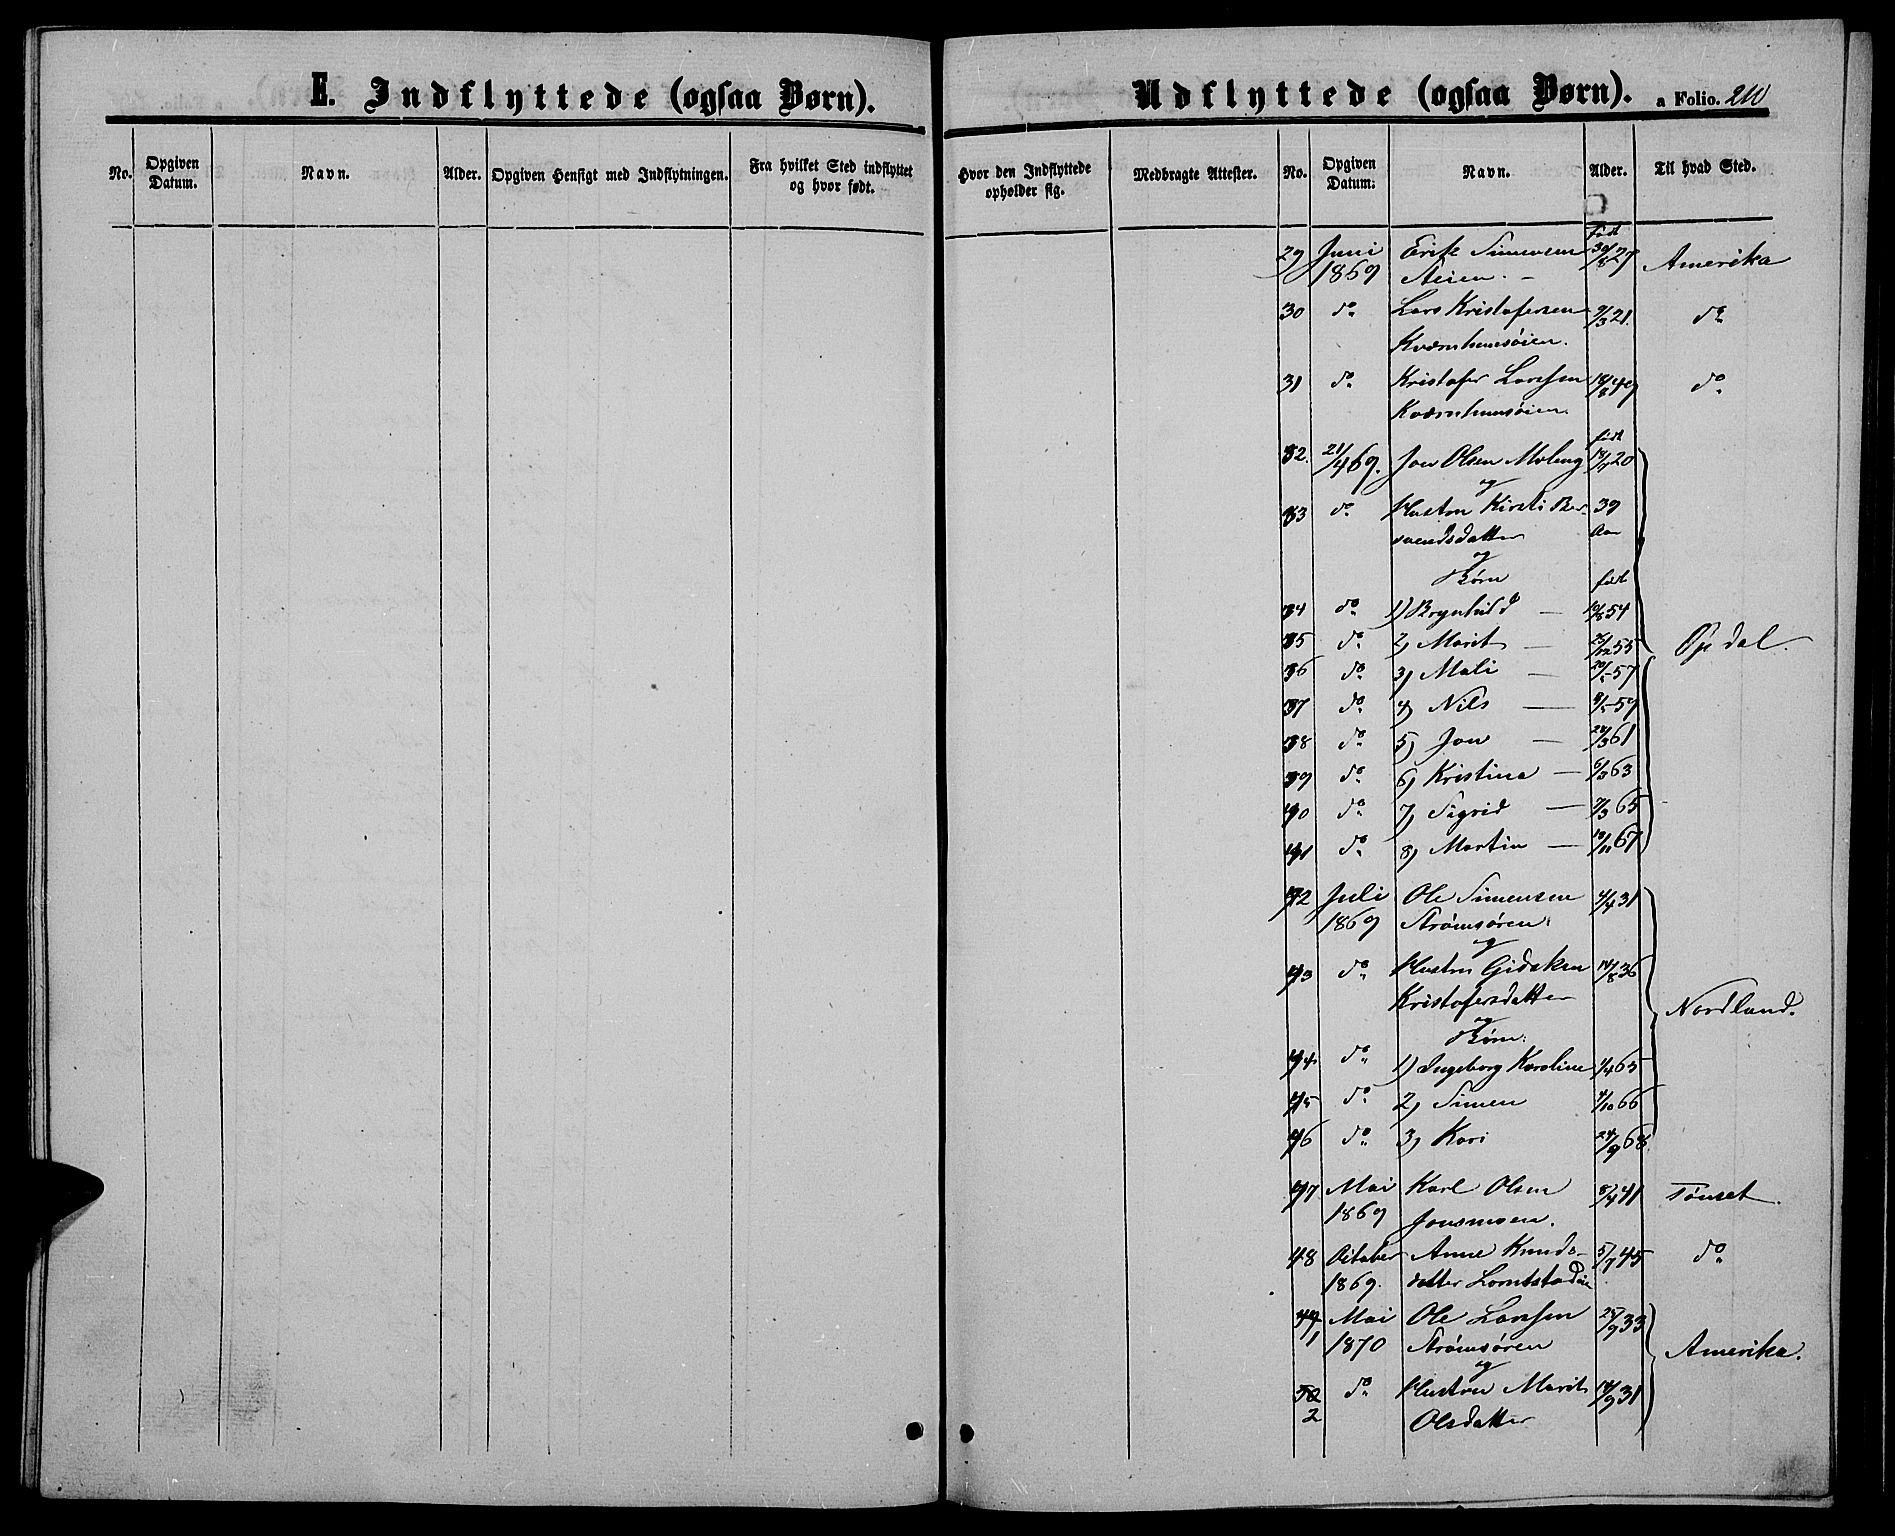 E. Indflyttede (ogsaa Børn).
No. Opgiven Datum. Navn. Alder. Opgiven Hensigt med Indflytningen. Fra hvilket Sted indflyttet og hvor født.
Udflyttede (ogsaa Børn). a Folio. 210
Hvor den Indflyttede opholder sig. Medbragte Attester. No. Opgiven Datum. Navn. Alder. Til hvad Sted.
født
29 Juni Erik Simensen 30/8 27 Amerika
1869 Aeien. -
30 do Lars Kristofersen 9/3 21. do
Kværnhusøien.
31 do Kristofer Larssen 18/8 49 do
Kværnhusøien.
født
32. 21/4 69. Jon Olsen Moleng 20
og
33 do Hustru Kirsti Ber- 39
svendsdatter Aar
og
Børn født
34 do 1) Brynhild — 54
35 do 2) Marit — 26/12 55 Opdal.
36 do 3) Mali — 57
37 do 4) Nils — 59
38 do 5) Jon — 24/3 61
39 do 6) Kristina — 6/3 63
40 do 7) Sigrid — 7/3 65
41 do 8) Martin — 18/11 67
42 Juli Ole Simensen 4/4 31
1869 Strømsøren.
og
43 do Hustru Gidsken 14/8 36
Kristofersdatter Nordland.
og
Børn.
44 do 1) Ingeborg Karoline 1/4 65
45 do 2) Simen 4/10 66
46 do 3) Kari 24/9 68.
47 Mai Karl Olsen 8/4 41 Tønset.
1869 Jonsmoen.
48 October Anne Knuds- 5/7 45 do
1869. datter
49 Mai Ole Larssen 25/9 33
1 1870 Strømsøren Amerika.
og
50 do Hustru Marit 14/9 31
2 Olsdatter